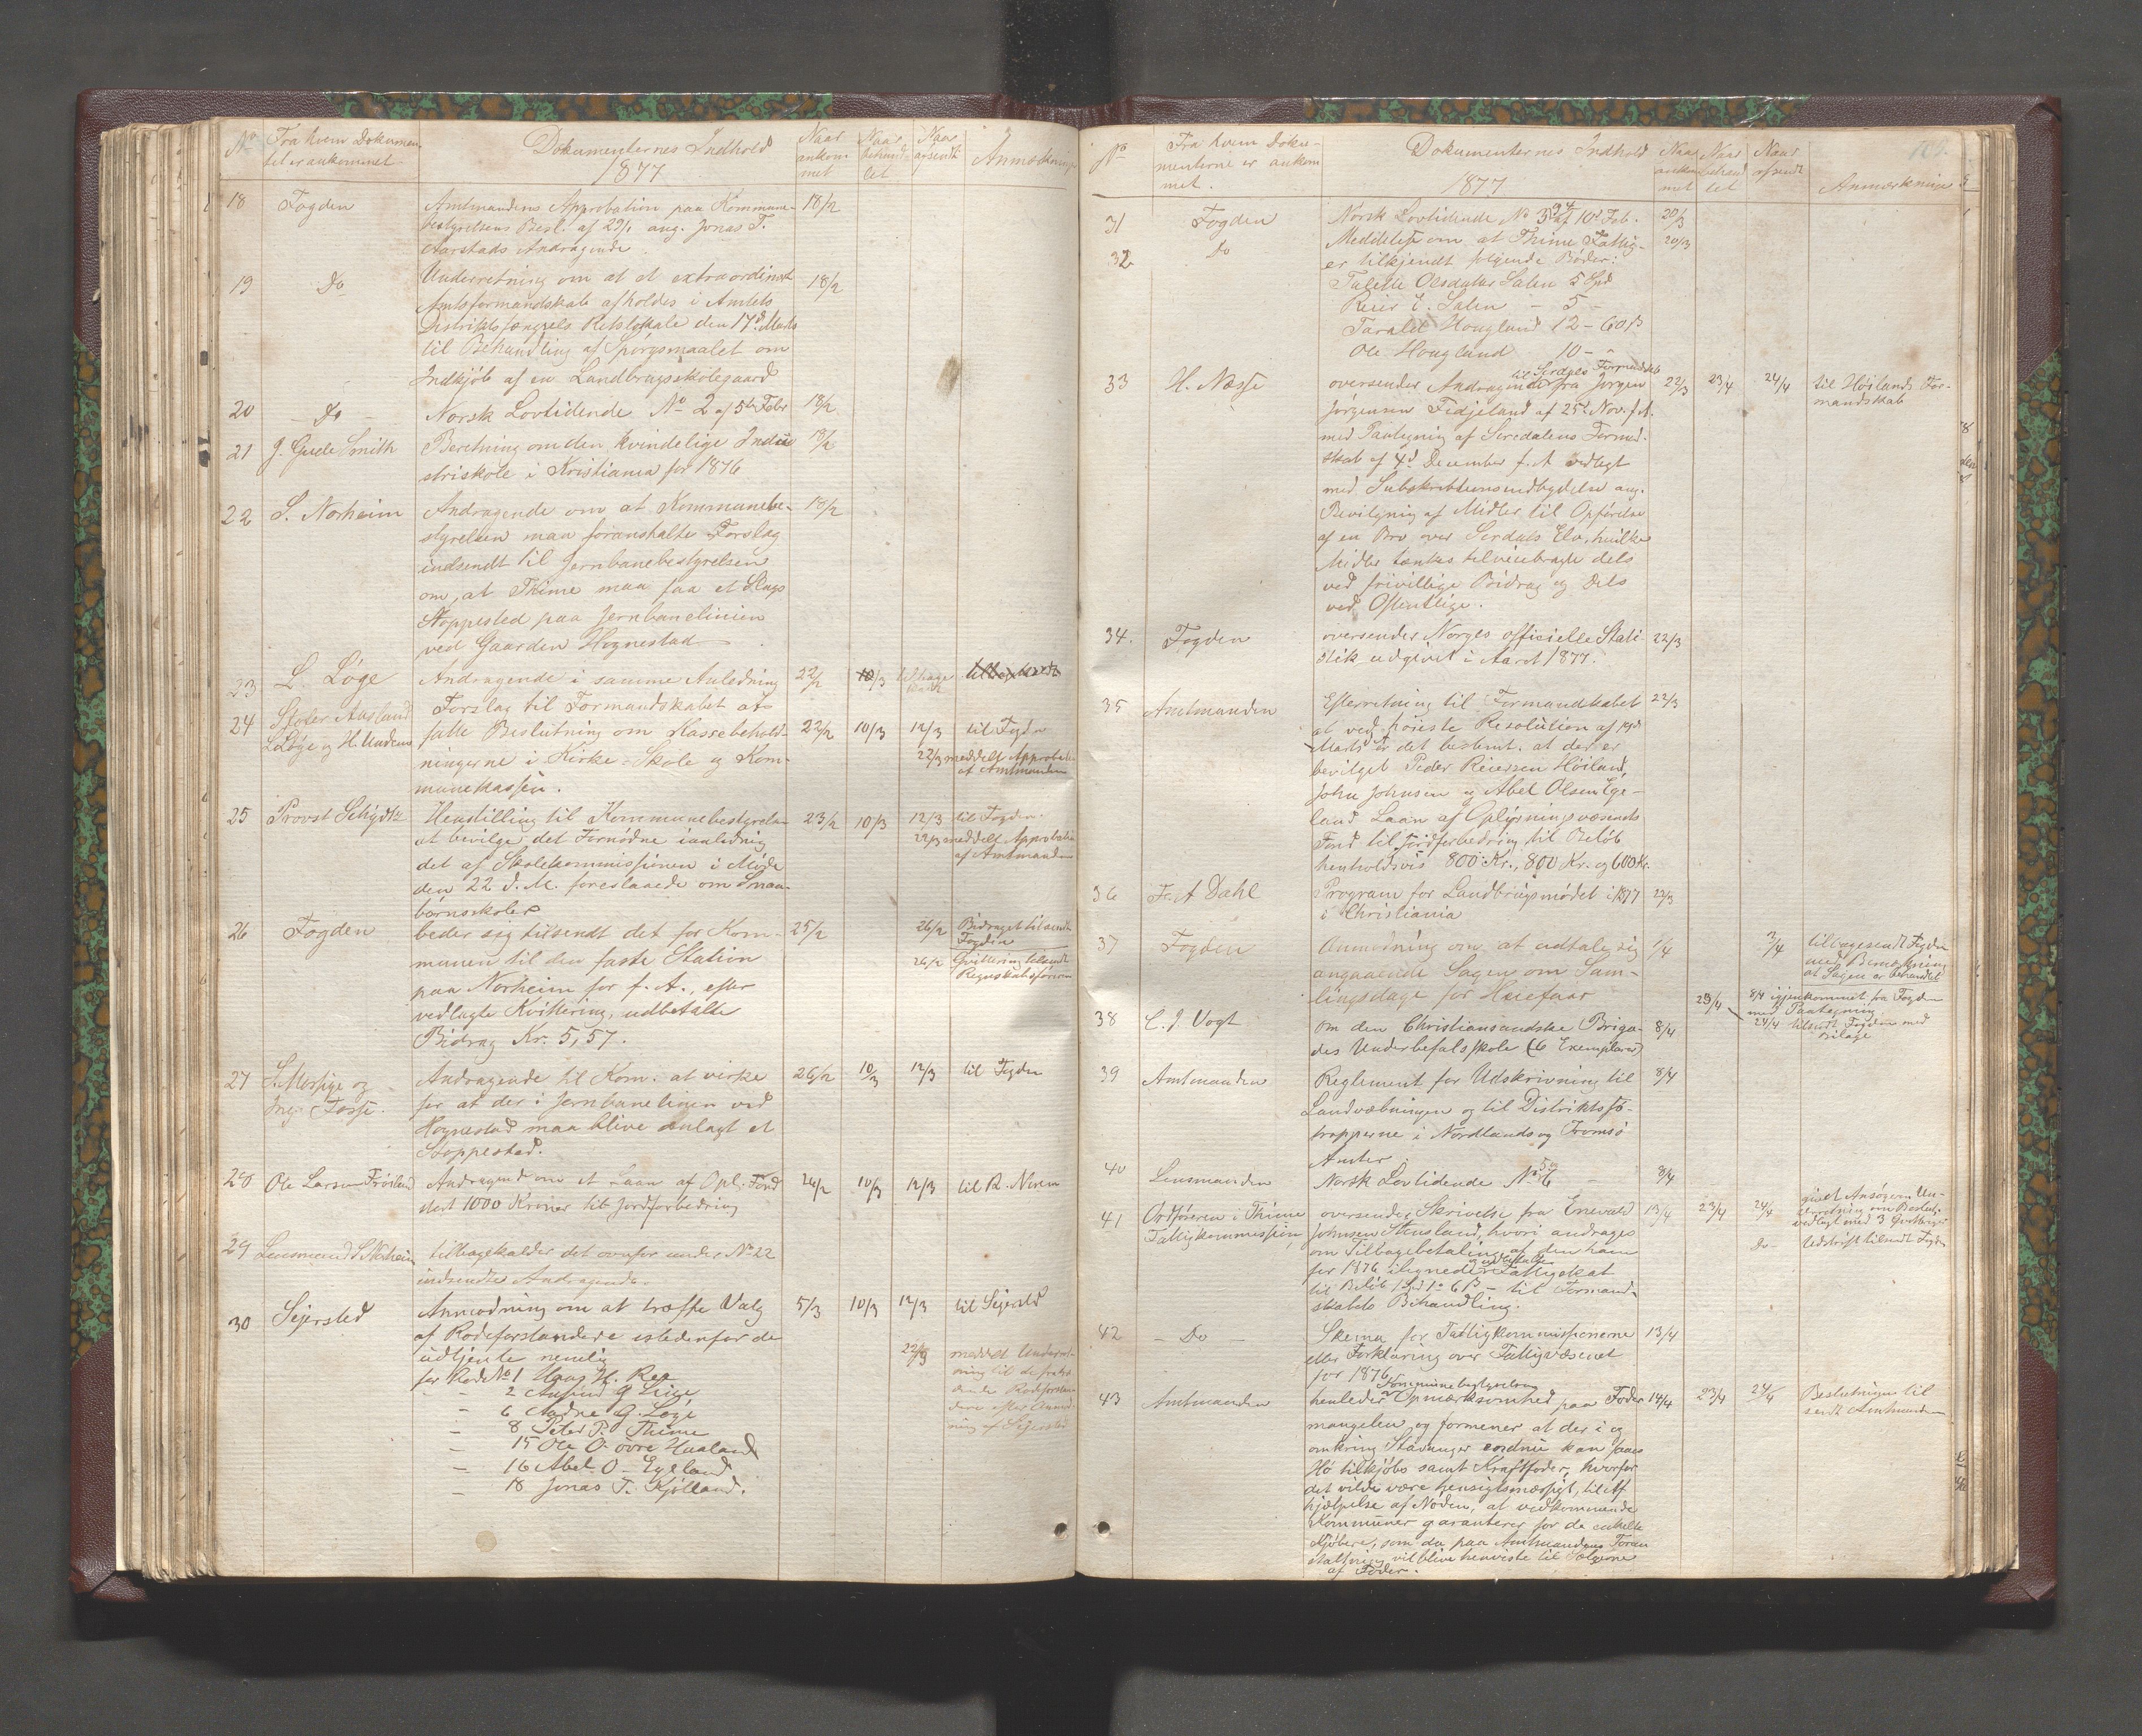 No
Fra hvem Dokumen-
tet er ankommet
Dokumenternes Indhold
1877
Naar
ankom
met
Naar
behand
let
Naar
afsendt
Anmærkninger
18 Fogden Amtmandens Approbation paa Kommune- 18/2
bestyrelsens Besl. af 29/1 ang. Jonas T.
Aarstads Andragende.
19 Do Underretning om at et extraordinært 18/2
Amtsformandskab afholdes i Amtets
Distriktsfængsels Retslokale den 17d Marts
til Behandling af Spørgsmaalet om
Indkjøb af en Landbrugsskolegaard
20 Do Norsk Lovtidende No 2 af 5te Febr 18/2
21 J. Gude Smith Beretning om den kvindelige Indu- 18/2
striskole i Kristiania for 1876
22 S. Norheim Andragende om at Kommunebe- 18/2
styrelsen maa foranstalte Forslag
indsendt til Jernbanebestyrelsen
om, at Thime maa faa et Slags
Stoppested paa Jernbanelinien
ved Gaarden Hognestad
23 L. Løge Andragende i samme Anledning 22/2 10/3 tilbage
24 Forslag til Formandskabet at
L. Løge og H. Undem fatte Beslutning om Kassebehold- 22/2 10/3 12/3 til Fogden
ningerne i Kirke- Skole og Kom- 22/3 meddelt Approbation
munekassen. af Amtmanden
25 Provst Schydtz Henstilling til Kommunebestyrelsen 23/2 10/3 12/3 til Fogden.
at bevilge det Fornødne i anledning 22/3 meddelt Approbation
det af Skolekommissionen i Møde af Amtmanden
den 22 d. M. foreslaaede om Smaa-
børnsskoler
26 Fogden beder sig tilsendt det for Kom- 25/2 26/2 Bidraget tilsendt
munen til den faste Station Fogden
paa Norheim for f. A., efter 26/2 Qvittering tilsendt
vedlagte Kvittering, udbetalte Regnskabsføreren
Bidrag Kr. 5,57.
27 Andragende til Kom. at virke 26/2 10/3 12/3 til Fogden
for at der i Jernbanelinien ved
Hognestad maa blive anlagt et
Stoppested.
28 Ole Larsen Frøiland Andragend om et Laan af Opl. Fond 26/2 10/3 12/3 til R. Nerem
stort 1000 Kroner til Jordforbedring
29 Lensmand S Norheim tilbagekalder det ovenfor under No 22
indsendte Andragende.
30 Sejersted Anmodning om at træffe Valg 5/3 10/3 12/3 til Sejersted
af Rodeforstandere istedenfor de
udtjente nemlig 22/3 meddelt Underret-
for Rode No 1 Haas H. Ree ning til de fratræ-
- - 2 Aufind G Lige dende Rodeforstan-
- 6 Andre G. Løge dere efter Anmod-
- 8 Peder P. Thime ning af Sejersted
- 15 Ole O. øvre Haaland
- 16 Abel O. Egeland
- 18 Jonas T. Kjølland.
No
Fra hvem Doku-
menterne er ankom
met.
Dokumenternes Indhold
1877
Naar
ankom
met
Naar
behand
let
Naar
afsendt
Anmærkning
31 Fogden Norsk Lovtidende No 3 af 10d Feb. 20/3
32 Do Meddelelse om at Thime Fattig- 20/3
er tilkjendt følgende Bøder:
Talette Olsdatter Salen 5 Spd
Reier E. Salen - 5 -
Tarald Hougland 12 - 60 β
Ole Hougland 10 - -
til Sirdals Formandskab
33 H. Næsse oversender Andragende fra Jørgen 22/3 23/4 24/4 til Høilands For-
Jørgensen Fidjeland af 25d Nov. f. A. mandskab
med Paategning af Siredalens Formd.
skab af 4d December f. A vedlagt
med Subskribtionsindbydelse ang.
Bevilgning af Midler til Opførelse
af en Bro over Sirdals Elv, hvilke
Midler tænkes tilveiebragte dels
ved frivillige Bidrag og dels
ved Offentlige.
34. Fogden oversender Norges officielle Stati- 22/3
stik udgivet i Aaret 1877.
35 Amtmanden Efterretning til Formandskabet 22/3
at ved høieste Resolution af
Marts er det bestemt, at der er
bevilget Peder Reiersen Høiland,
John Johnsen og Abel Olsen Ege-
land Laan af Oplysningsvæsenets
Fond til Jordforbedring til Beløb
henholdsvis 800 Kr., 800 Kr. og 600 Kr.
36 Fr. A Dahl Program for Landbrugsmødet i 1877 22/3
i Christiania
37 Fogden Anmodning om at udtale sig 1/4 3/4 tilbagesendt Fogden
angaaende Sagen om Sam- med Bemærkning
lingsdage for Heiefaar at Sagen er behandlet
23/4 8/4 igjenkommet fra Fogden
med Paategning
24/4 tilsendt Fogden med
Bilage
38 C. J. Vogt om den Christiansandske Briga- 8/4
des Underbefalsskole (6 Exemplarer)
39 Amtmanden Reglement for Udskrivning til 8/4
Landværningen og til Distrikts
tropperne i Nordlands og Tromsø
Amter.
40 Lensmanden Norsk Lovtidende No 5 6 - 8/4
41 Ordføreren i Thime oversender Skrivelse fra Enevald 13/4 23/4 24/4 givet Ansøgeren Un-
Fattigkommission, Johnsen Stensland, hvori andrages derretning om Beslut.
om Tilbagebetaling af den ham vedlagt med 3
for 1876 ilignede og udbetalte Fattigskat Do Udskrift tilsendt Fogden
til Beløb 1 Spd 1 - 6 β - til Formand-
skabets Behandling.
42 - Do - Skema for Fattigkommissionerne 13/4
eller Forklaring over Fattigvæsenet
for 1876
Kommunebestyrelsens
43 Amtmanden henleder Opmærksomhed paa Foder 14/4 23/4 24/4 Beslutningen til
mangelen, og formener at der i og sendt Amtmanden
omkring Stavanger endnu kan faaes
Hø tilkjøbs samt Kraftfoder, hvorfor
det vilde være hensigtsmæssigt, til
hjælpelse af Nøden, at vedkommende
Kommuner garanterer for de enkelte
Kjøbere, som da paa Amtmandens Foran
staltning vil blive henviste til Sælgerne
af Foder.